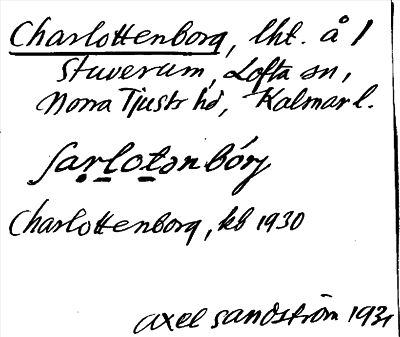 Charlottenborg, lht. å /
Stuverum, Lofta sn,
Norra Tjust hd, Kalmar l.
ſarlotənbórj
Charlottenborg, kb 1930
Axel Sandström